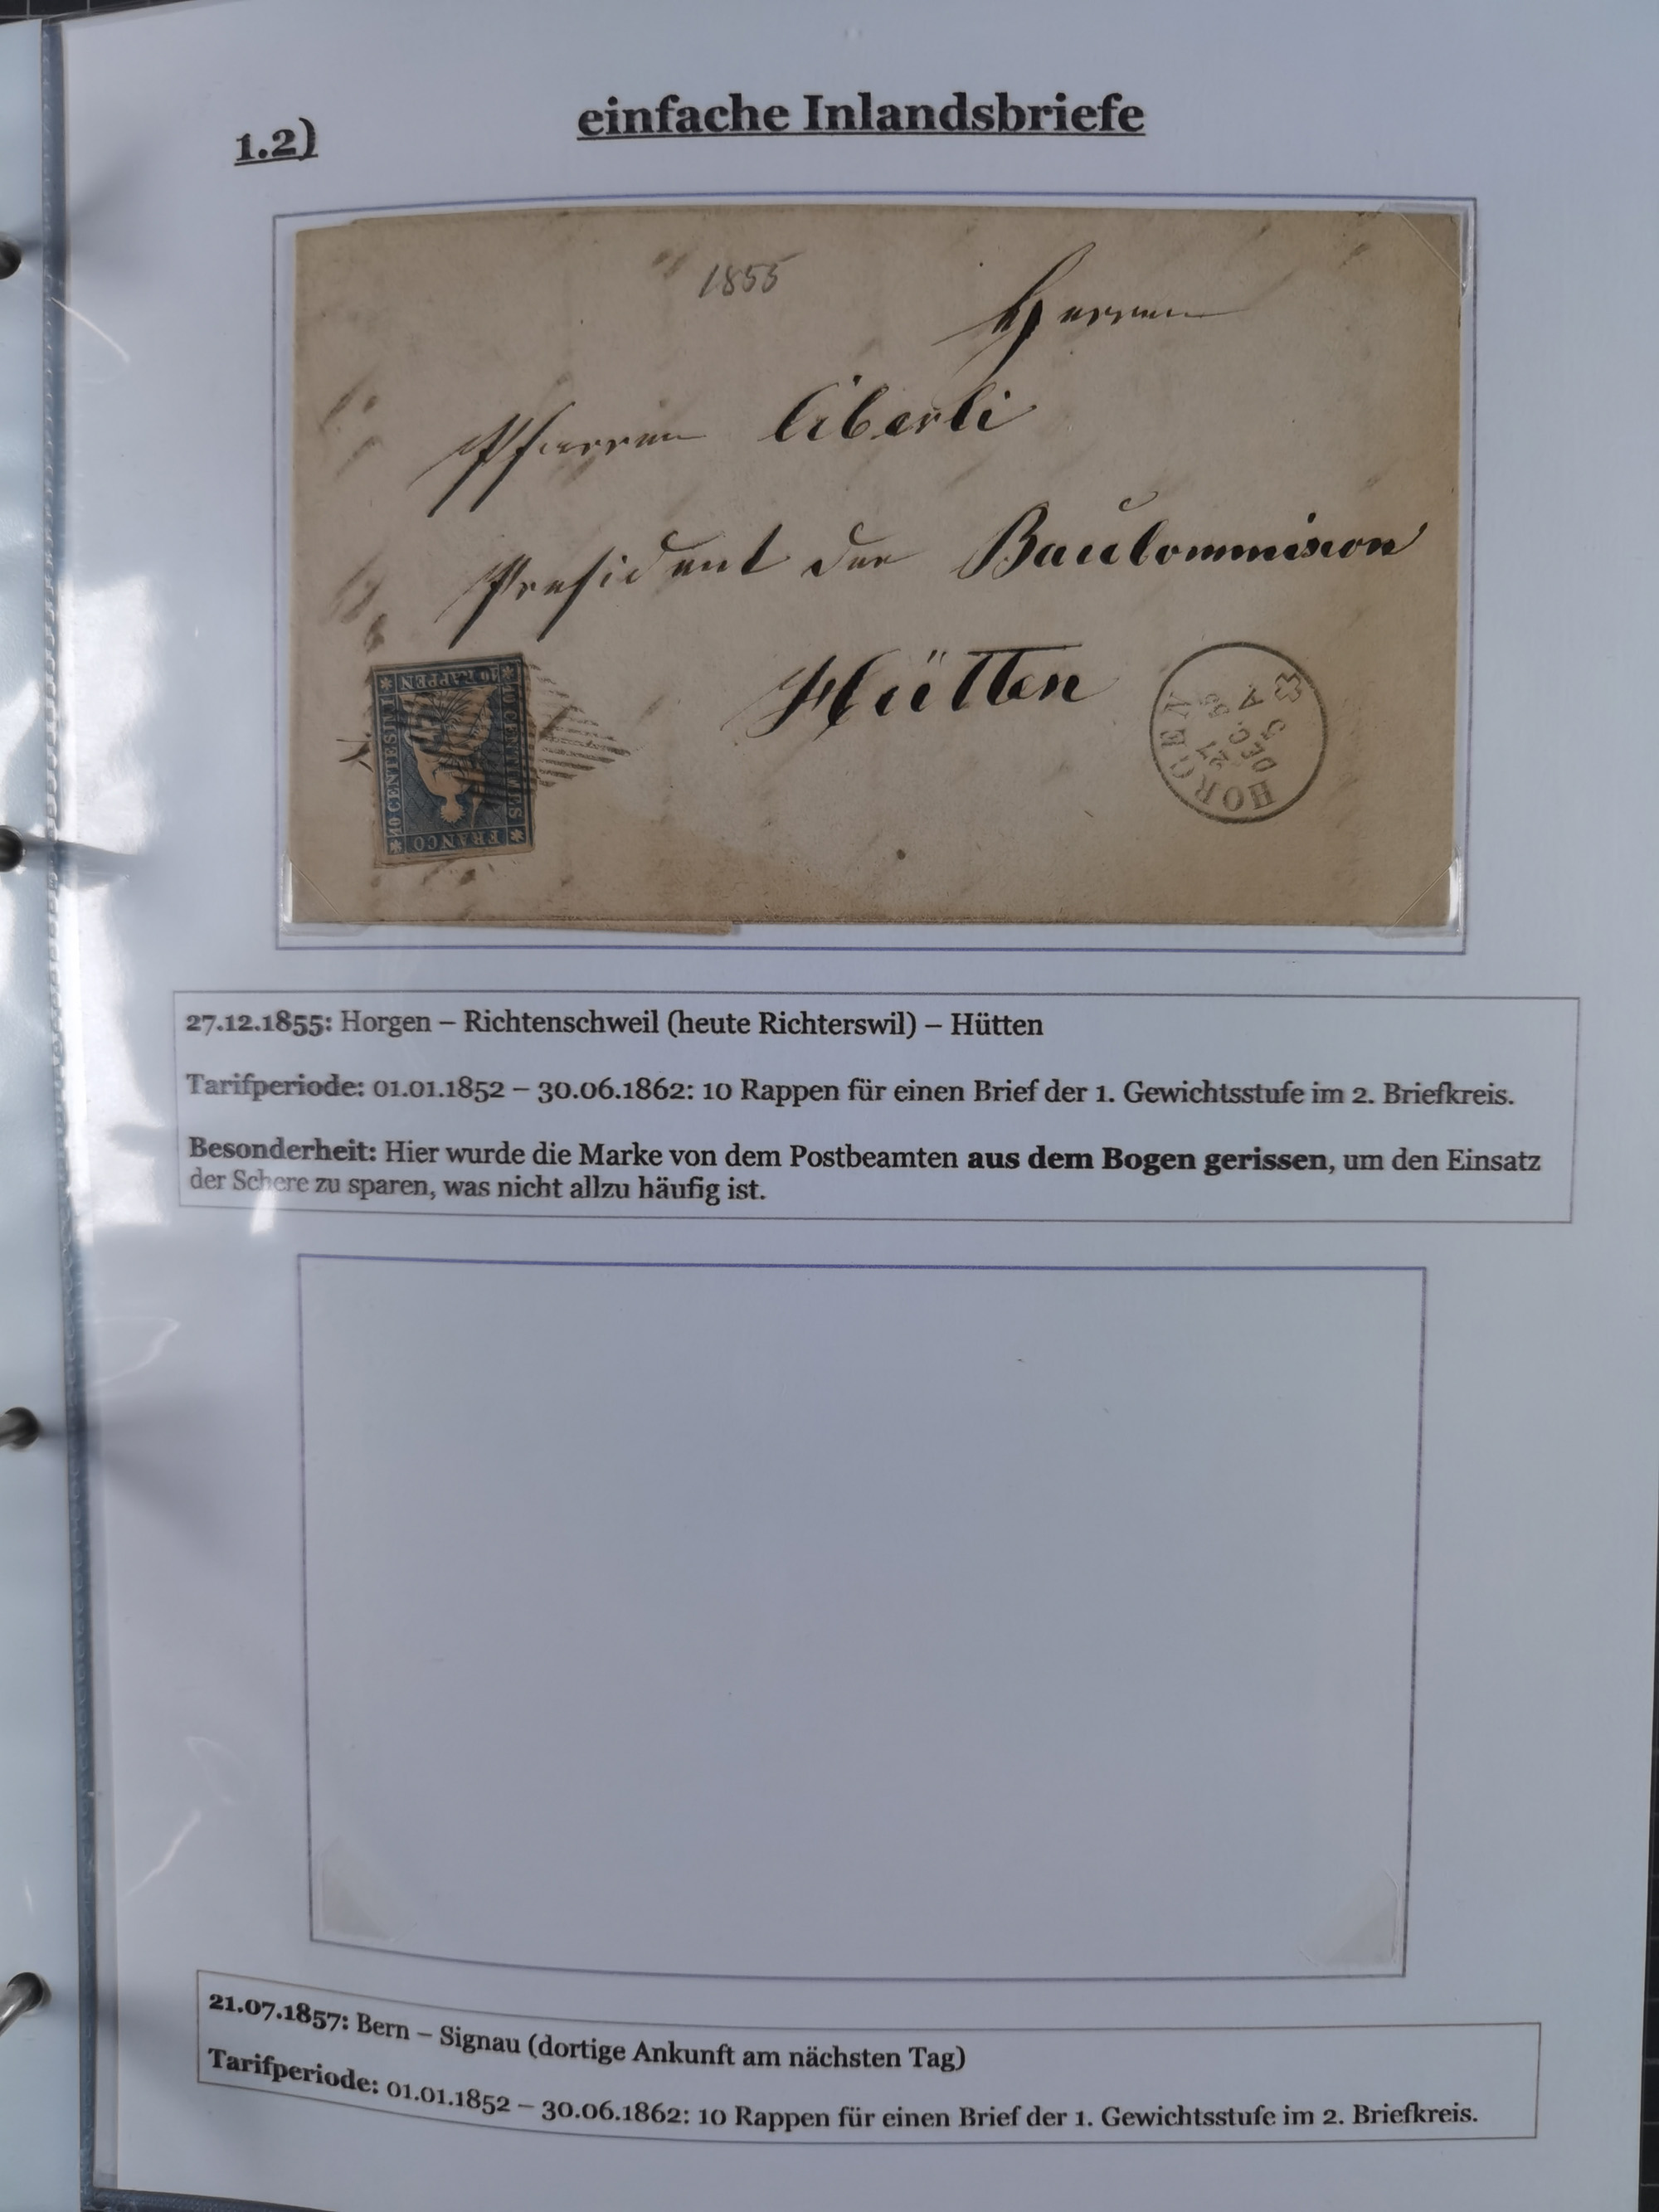 1.2)
einfache Inlandsbriefe
1855
Herrn
Pfarrer Aberli
President der Baucommission
Hütten
10 RAPPEN
10 CENTIMES
10 CENTESIMI
FRANCO
HORGEN
27
DEC. 55
5 A
27.12.1855: Horgen – Richtenschweil (heute Richterswil) – Hütten
Tarifperiode: 01.01.1852 – 30.06.1862: 10 Rappen für einen Brief der 1. Gewichtsstufe im 2. Briefkreis.
Besonderheit: Hier wurde die Marke von dem Postbeamten aus dem Bogen gerissen, um den Einsatz
der Schere zu sparen, was nicht allzu häufig ist.
21.07.1857: Bern – Signau (dortige Ankunft am nächsten Tag)
Tarifperiode: 01.01.1852 – 30.06.1862: 10 Rappen für einen Brief der 1. Gewichtsstufe im 2. Briefkreis.